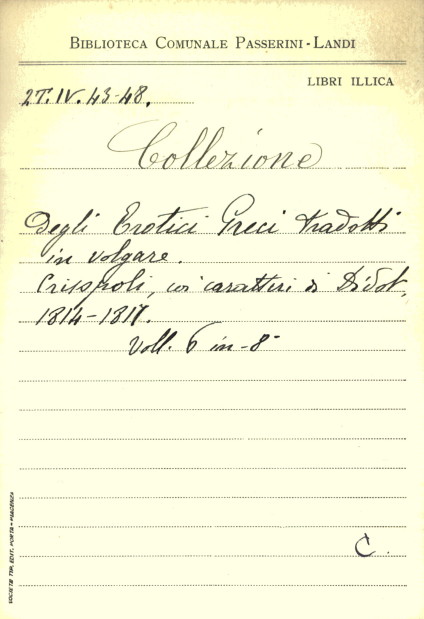 BIBLIOTECA COMUNALE PASSERINI-LANDI
LIBRI ILLICA
2T.IV.43-48.
Collezione
Degli Erotici Greci tradotti
in volgare.
Crisopoli, coi caratteri di Didot,
1814-1817.
Voll. 6 in-8°
C.
SOCIETÀ TIP. EDIT. PORTA - PIACENZA